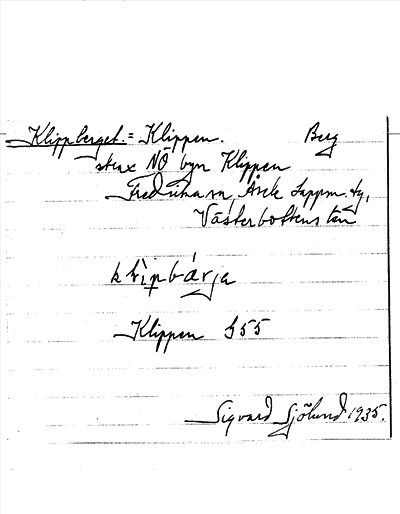 Klippberget. = Klippen. Berg
strax NÖ byn Klippen
Fredrika sn, Åsele Lappm. tg,
Västerbottens län
klìpbárja
Klippen S55
Sigvard Sjölund 1935.